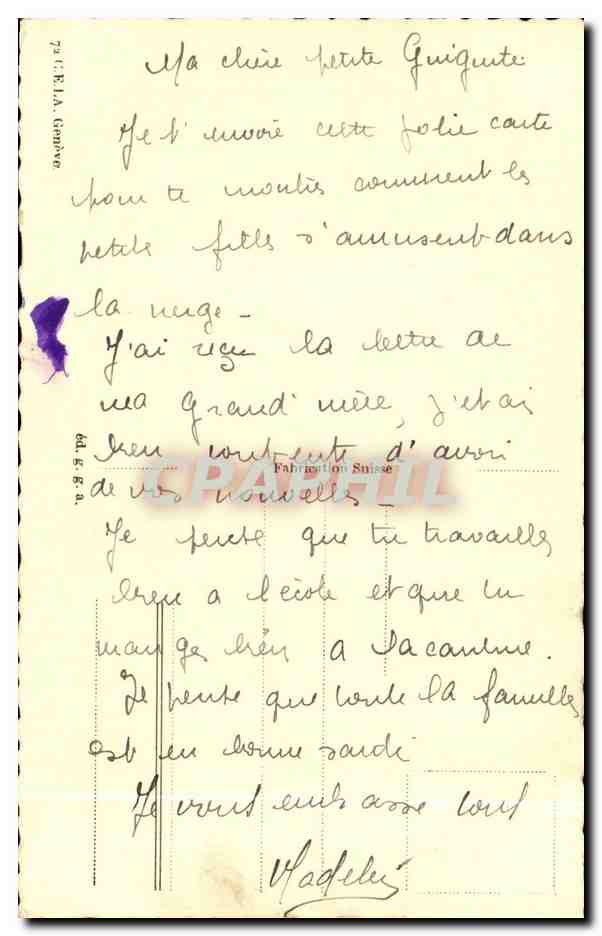 Ma chère petite Guiguite
Je t'envoie cette jolie carte
pour te montrer comment les
petite filles s'amusent dans
la neige -
J'ai reçu la lettre de
ma grand'mère, j'étais
bien contente d'avoir
de vos nouvelles -
Je pense que tu travailles
bien a l'école et que tu
manges bien a la cantine.
Je pense que toute la familles
est en bonne santé
Je vous embrasse tous
Madeleine
72 C.E.I.A. Genève.
éd. g. g. a.
Fabrication Suisse
CPAPHIL